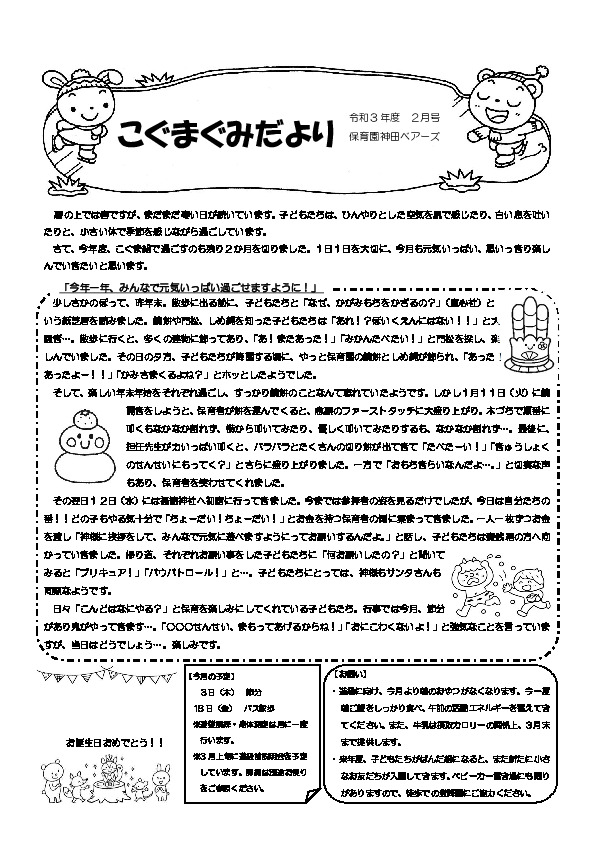 こぐまぐみだより
令和3年度　2月号
保育園神田ベアーズ
暦の上では春ですが、まだまだ寒い日が続いています。子どもたちは、ひんやりとした空気を肌で感じたり、白い息を吐い
たりと、小さい体で季節を感じながら過ごしています。
さて、今年度、こぐま組で過ごすのも残り2か月を切りました。1日1日を大切に、今月も元気いっぱい、思いっきり楽し
んでいきたいと思います。
「今年一年、みんなで元気いっぱい過ごせますように！」
少しさかのぼって、昨年末。散歩に出る前に、子どもたちと「なぜ、かがみもちをかざるの？」（童心社）と
いう紙芝居を読みました。鏡餅や門松、しめ縄を知った子どもたちは「あれ！？ほいくえんにはない！！」と大
騒ぎ…。散歩に行くと、多くの建物に飾ってあり、「あ！またあった！」「みかんたべたい！」と門松を探し、楽
しんでいました。その日の夕方、子どもたちが降園する頃に、やっと保育園の鏡餅としめ縄が飾られ、「あった！
あったよー！！」「かみさまくるよね？」とホッとしたようでした。
そして、楽しい年末年始をそれぞれ過ごし、すっかり鏡餅のことなんて忘れていたようです。しかし1月11日（火）に鏡
開きをしようと、保育者が餅を運んでくると、感動のファーストタッチに大盛り上がり。木づちで順番に
叩くもなかなか割れず、横から叩いてみたり、優しく叩いてみたりするも、なかなか割れず…。最後に、
担任先生が力いっぱい叩くと、バラバラとたくさんの切り餅が出て来て「たべたーい！」「きゅうしょく
のせんせいにもってく？」とさらに盛り上がりました。一方で「おもちきらいなんだよ…。」と切実な声
もあり、保育者を笑わせてくれました。
その翌日12日（水）には福徳神社へ初詣に行ってきました。今までは参拝者の姿を見るだけでしたが、今日は自分たちの
番！！どの子もやる気十分で「ちょーだい！ちょーだい！」とお金を持つ保育者の周に集まってきました。一人一枚ずつお金
を渡し「神様に挨拶をして、みんなで元気に遊べますようにってお願いするんだよ。」と話し、子どもたちは賽銭箱の方へ向
かっていきました。帰り道、それぞれお願い事をした子どもたちに「何お願いしたの？」と聞いて
みると「プリキュア！」「パウパトロール！」と…。子どもたちにとっては、神様もサンタさんも
同じなようです。
日々「こんどはなにやる？」と保育を楽しみにしてくれている子どもたち。行事では今月、節分
があり鬼がやってきます…。「〇〇〇せんせい、まもってあげるからね！」「おにこわくないよ！」と強気なことを言っていま
すが、当日はどうでしょう…。楽しみです。
お誕生日おめでとう！！
【今月の予定】
3日（木）　節分
18日（金）　バス散歩
※避難訓練・身体測定は月に一度
行います。
※3月上旬に進級説明会を予定
しています。詳細は別途お便り
をご参照ください。
【お願い】
・進級に向け、今月より朝のおやつがなくなります。今一度
朝ご飯をしっかり食べ、午前の活動エネルギーを蓄えてき
てください。また、牛乳は摂取カロリーの関係上、3月末
まで提供します。
・来年度、子どもたちがぱんだ組になると、またあらたに小さ
なお友だちが入園してきます。ベビーカー置き場にも限り
がありますので、徒歩での登降園にご協力ください。